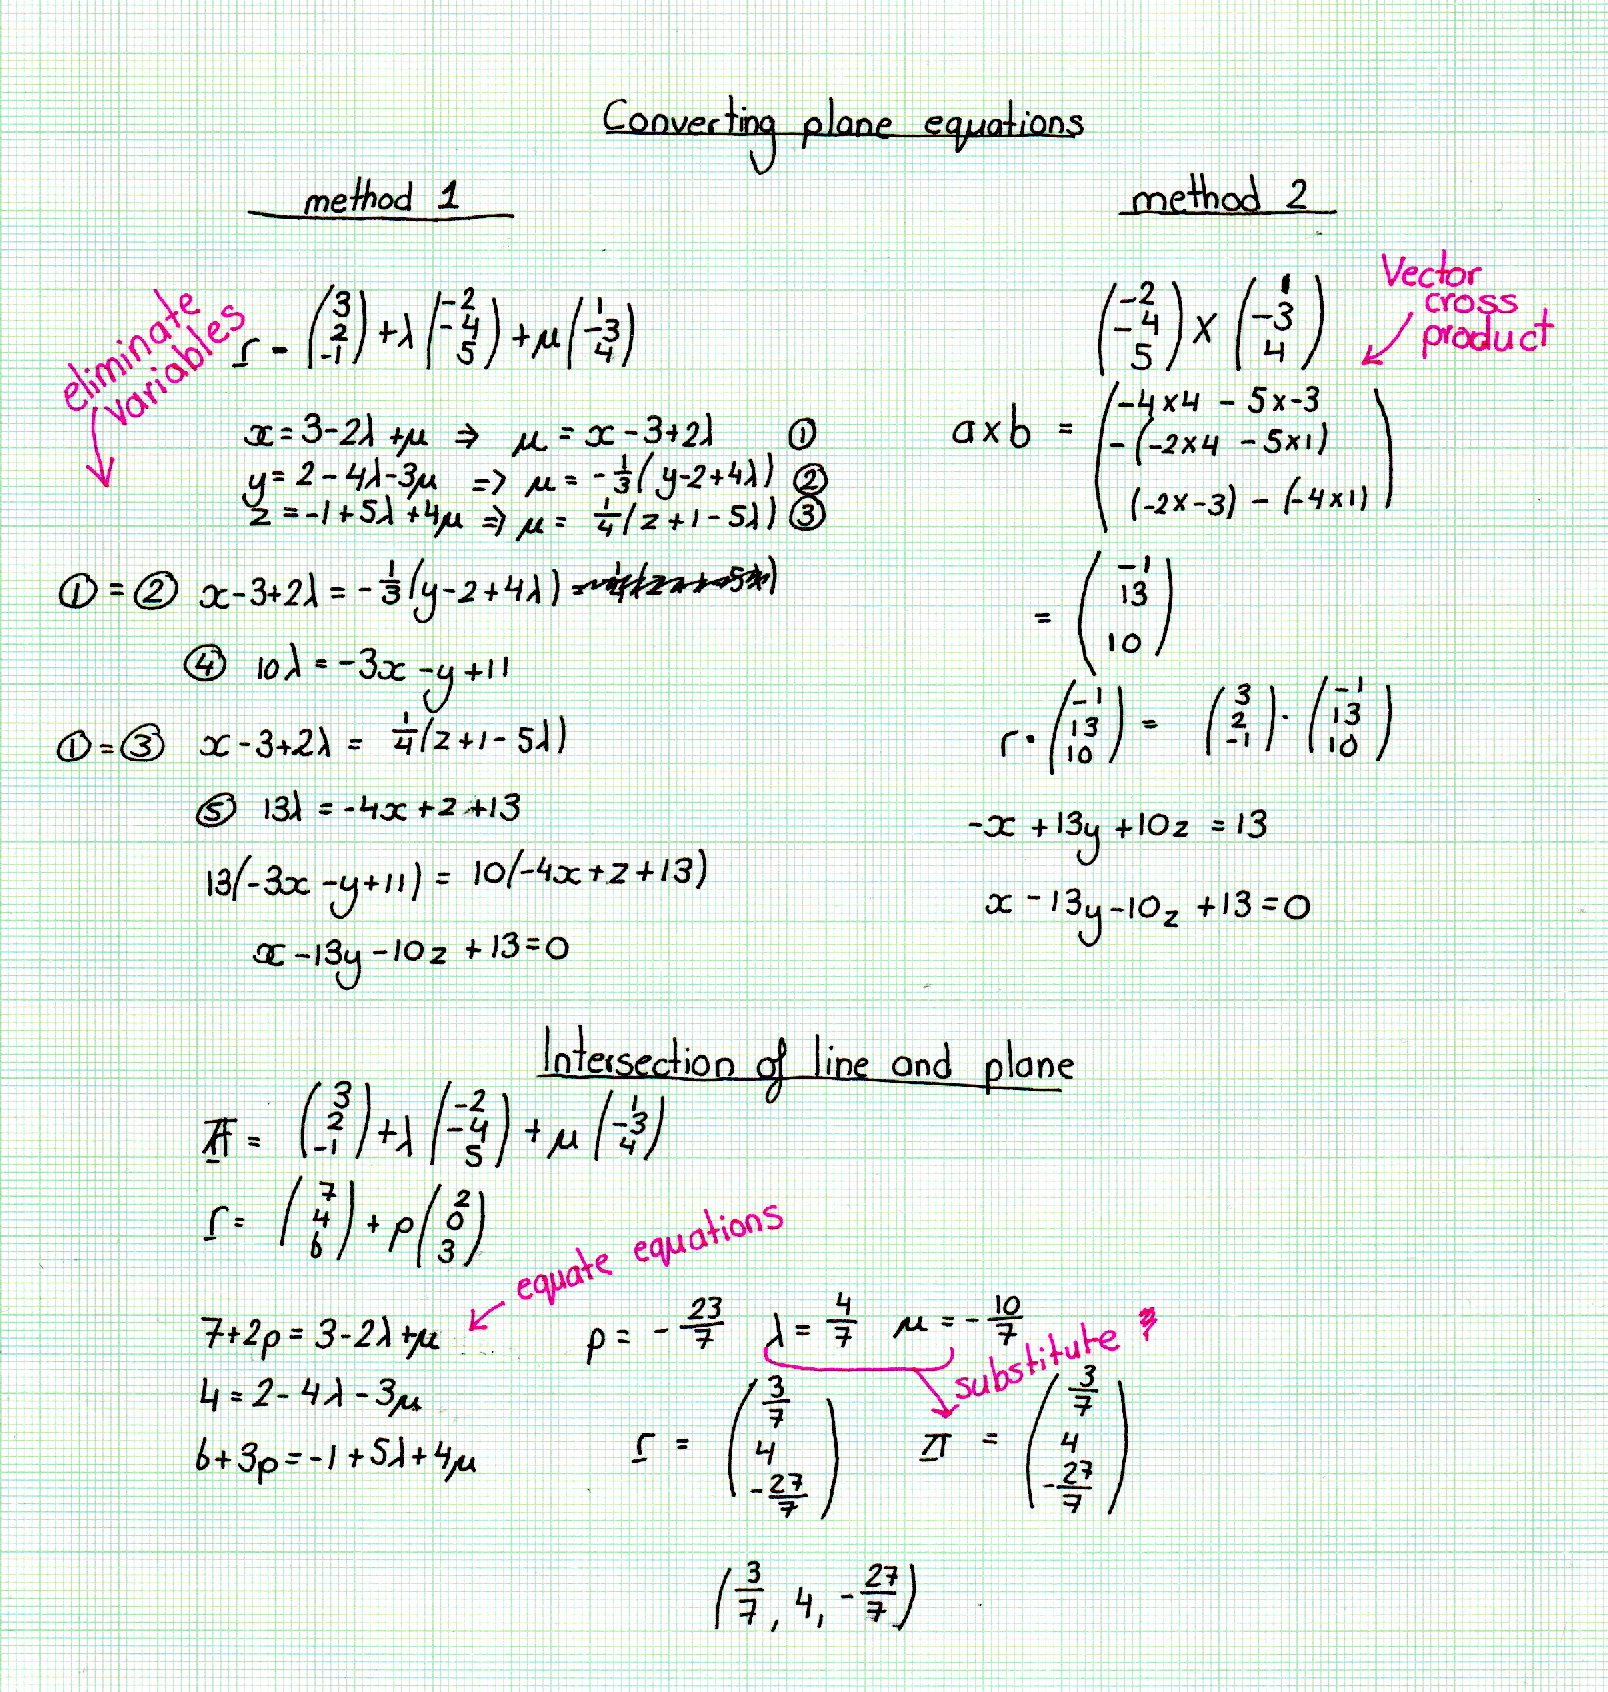 Converting plane equations
method 1
eliminate variables
r = (3 2 -1) + λ(-2 -4 5) + μ(1 -3 4)
x = 3-2λ+μ ⇒ μ = x-3+2λ ①
y = 2-4λ-3μ ⇒ μ = -1/3(y-2+4λ) ②
z = -1+5λ+4μ ⇒ μ = 1/4(z+1-5λ) ③
①=② x-3+2λ = -1/3(y-2+4λ)
④ 10λ = -3x-y+11
①=③ x-3+2λ = 1/4(z+1-5λ)
⑤ 13λ = -4x+z+13
13(-3x-y+11) = 10(-4x+z+13)
x-13y-10z+13=0
method 2
Vector cross product
(-2 -4 5) × (1 -3 4)
a×b = (-4×4 - 5×-3
-(-2×4 - 5×1)
(-2×-3) - (-4×1))
= (-1 13 10)
r·(-1 13 10) = (3 2 -1)·(-1 13 10)
-x+13y+10z = 13
x-13y-10z+13=0
Intersection of line and plane
π = (3 2 -1) + λ(-2 -4 5) + μ(1 -3 4)
r = (7 4 6) + p(2 0 3)
equate equations
7+2p = 3-2λ+μ
4 = 2-4λ-3μ
6+3p = -1+5λ+4μ
p = -23/7 λ = 4/7 μ = -10/7
substitute
r = (3/7 4 -27/7) π = (3/7 4 -27/7)
(3/7, 4, -27/7)